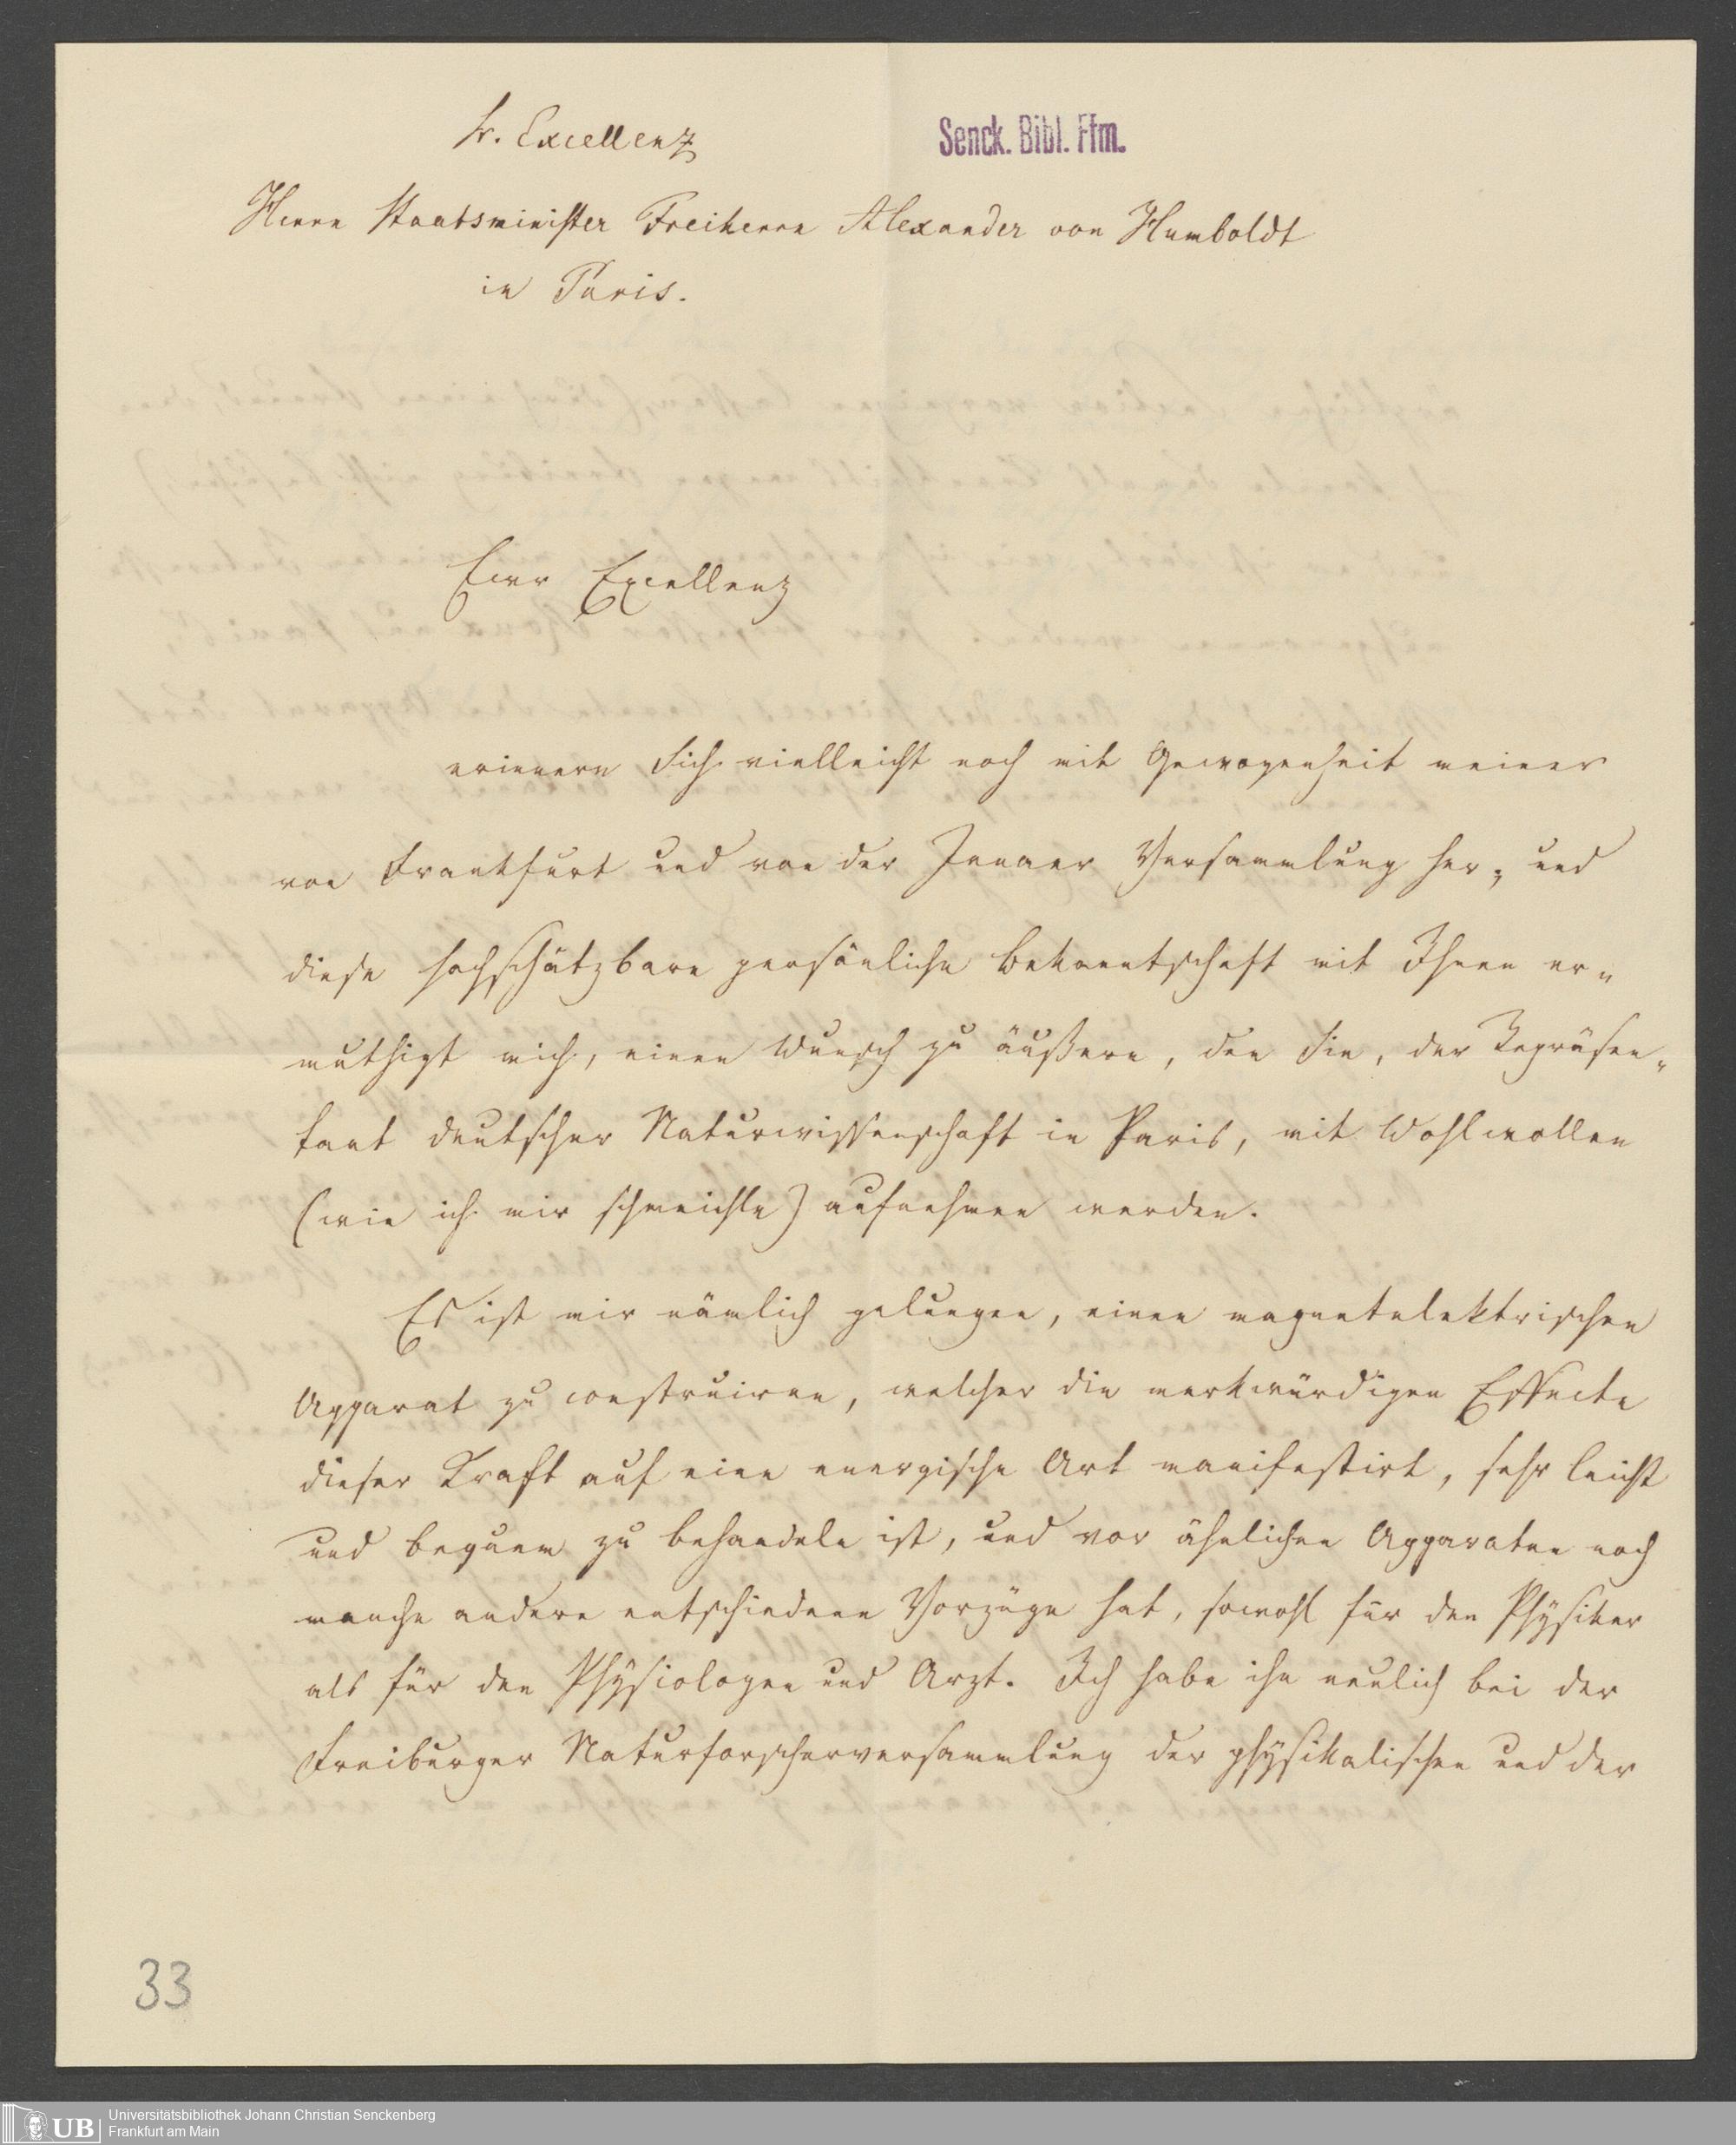 Sr. Excellenz
Senck. Bibl. Ffm.
Herrn Staatsminister Freiherrn Alexander von Humboldt
in Paris.
Eure Excellenz
erinnern Sich vielleicht noch mit Gewogenheit meiner
von Frankfurt und von der Jenaer Versammlung her; und
diese hochschätzbare persönliche Bekanntschaft mit Ihnen er-
muthigt mich, einen Wunsch zu äußern, den Sie, der Repräsen-
tant deutscher Naturwissenschaft in Paris, mit Wohlwollen
(wie ich mir schmeichle) aufnehmen werden.
Es ist mir nämlich gelungen, einen magnetelektrischen
Apparat zu construiren, welcher die merkwürdigen Effecte
dieser Kraft auf eine energische Art manifestirt, sehr leicht
und bequem zu behandeln ist, und vor ähnlichen Apparaten noch
manche andere entschiedene Vorzüge hat, sowohl für den Physiker
als für den Physiologen und Arzt. Ich habe ihn neulich bei der
Freiburger Naturforscherversammlung der physikalischen und der
33
UB
Universitätsbibliothek Johann Christian Senckenberg
Frankfurt am Main